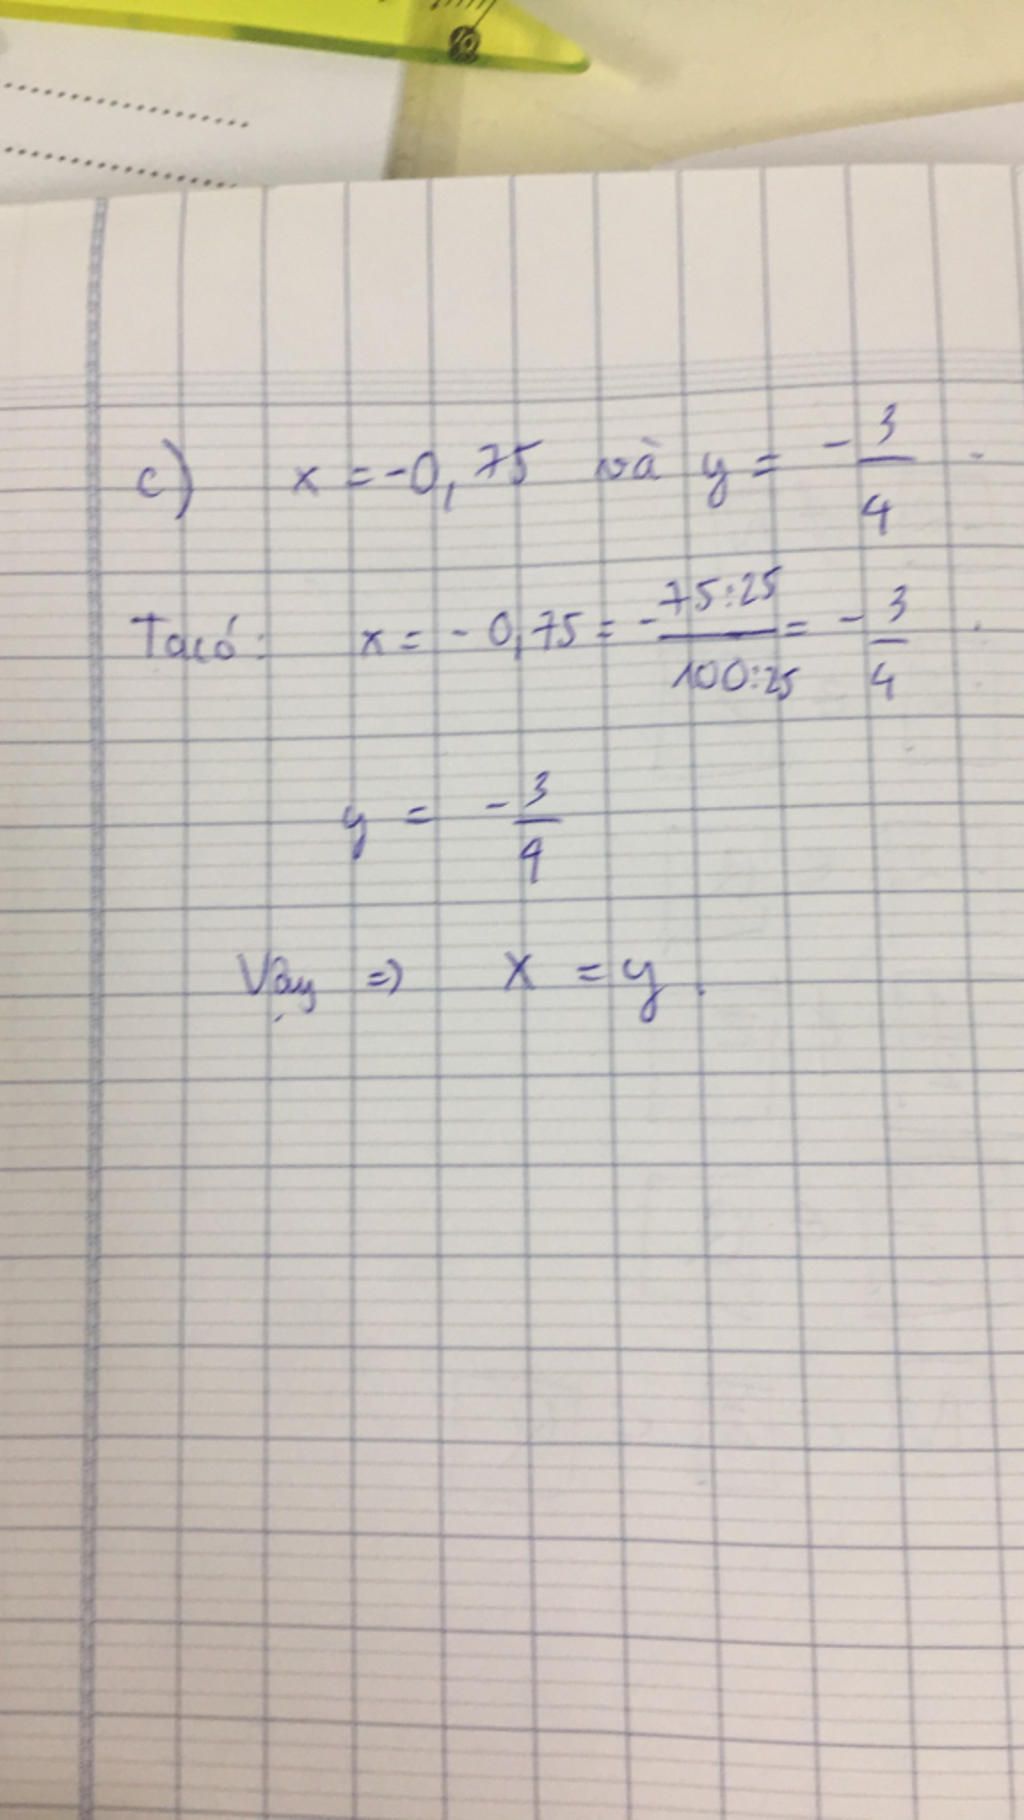 10
c) x = -0,75 và y = -3/4.
Ta có: x = -0,75 = -75:25/100:25 = -3/4.
y = -3/4
Vậy => x = y.